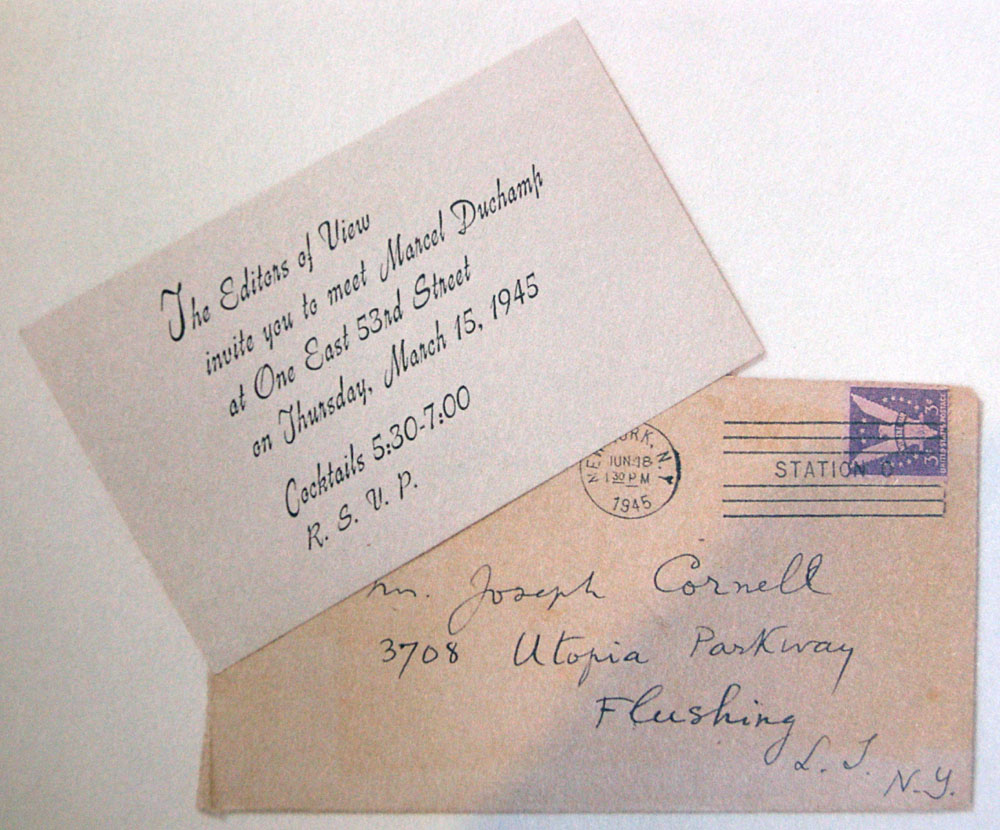 The Editors of View
invite you to meet Marcel Duchamp
at One East 53rd Street
on Thursday, March 15, 1945
Cocktails 5:30-7:00
R. S. V. P.
NEW YORK, N.Y.
JUN 18
1 30 PM
1945
STATION O
3¢
3¢
UNITED STATES POSTAGE
Mr. Joseph Cornell
3708 Utopia Parkway
Flushing
L. I.
N.Y.